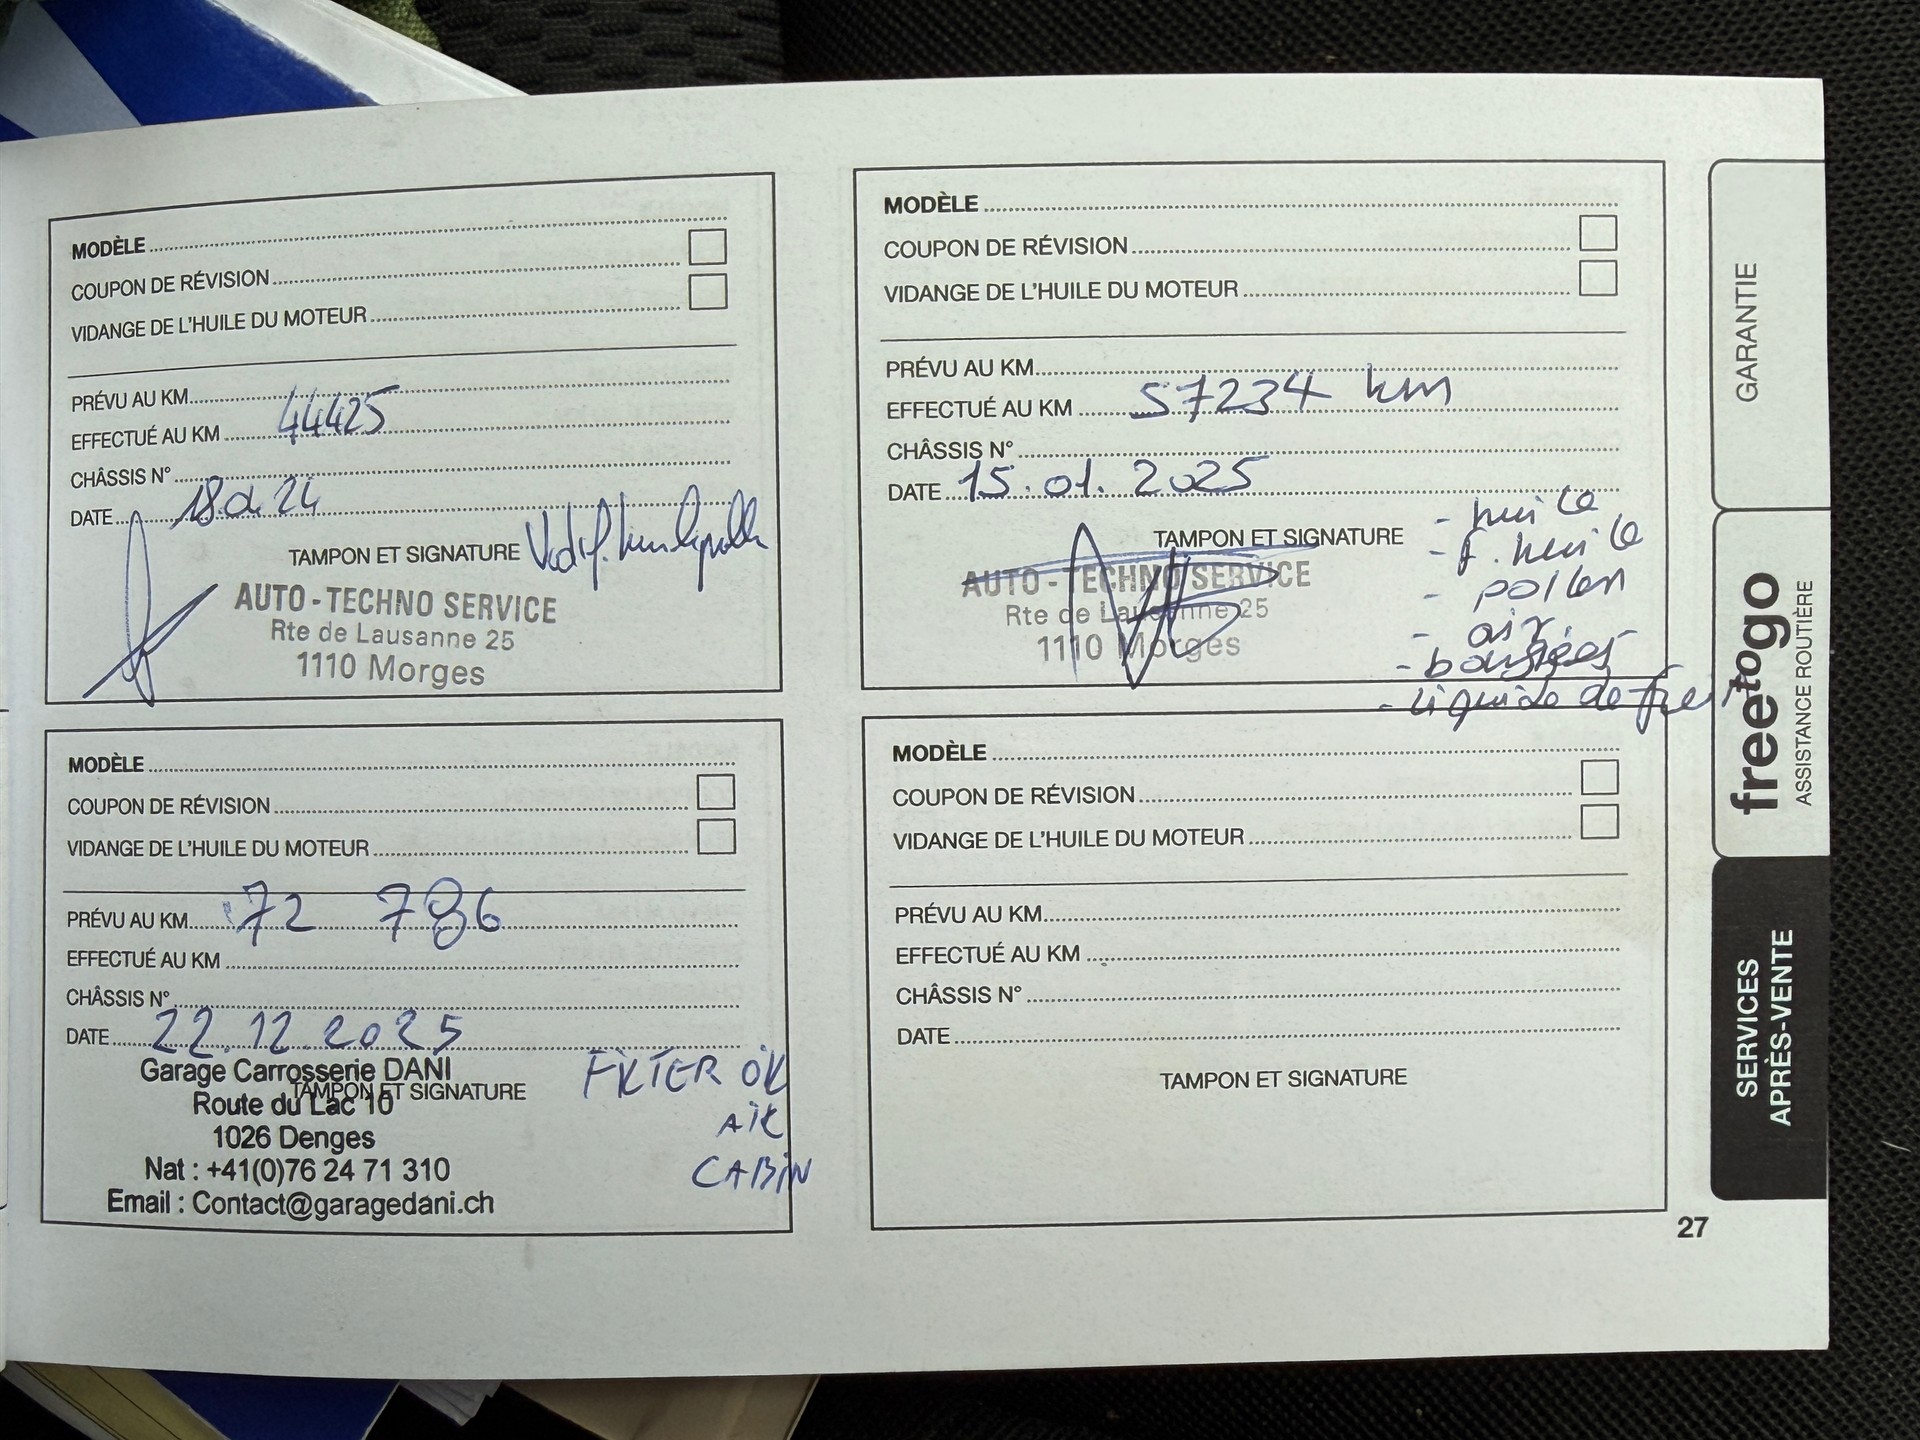 MODÈLE
COUPON DE RÉVISION
VIDANGE DE L'HUILE DU MOTEUR
PRÉVU AU KM
EFFECTUÉ AU KM 44425
CHÂSSIS N°
DATE 18 01 24
TAMPON ET SIGNATURE
AUTO - TECHNO SERVICE
Rte de Lausanne 25
1110 Morges
MODÈLE
COUPON DE RÉVISION
VIDANGE DE L'HUILE DU MOTEUR
PRÉVU AU KM
EFFECTUÉ AU KM 57234 km
CHÂSSIS N°
DATE 15.01.2025
TAMPON ET SIGNATURE
- huile
- f. huile
- pollen
- air
- bougies
- liquide de frein
AUTO - TECHNO SERVICE
Rte de Lausanne 25
1110 Morges
MODÈLE
COUPON DE RÉVISION
VIDANGE DE L'HUILE DU MOTEUR
PRÉVU AU KM 72 786
EFFECTUÉ AU KM
CHÂSSIS N°
DATE 22.12.2025
TAMPON ET SIGNATURE
Garage Carrosserie DANI
Route du Lac 10
1026 Denges
Nat : +41(0)76 24 71 310
Email : Contact@garagedani.ch
FILTER OK
AIR
CABIN
MODÈLE
COUPON DE RÉVISION
VIDANGE DE L'HUILE DU MOTEUR
PRÉVU AU KM
EFFECTUÉ AU KM
CHÂSSIS N°
DATE
TAMPON ET SIGNATURE
GARANTIE
freetogo
ASSISTANCE ROUTIÈRE
SERVICES
APRÈS-VENTE
27